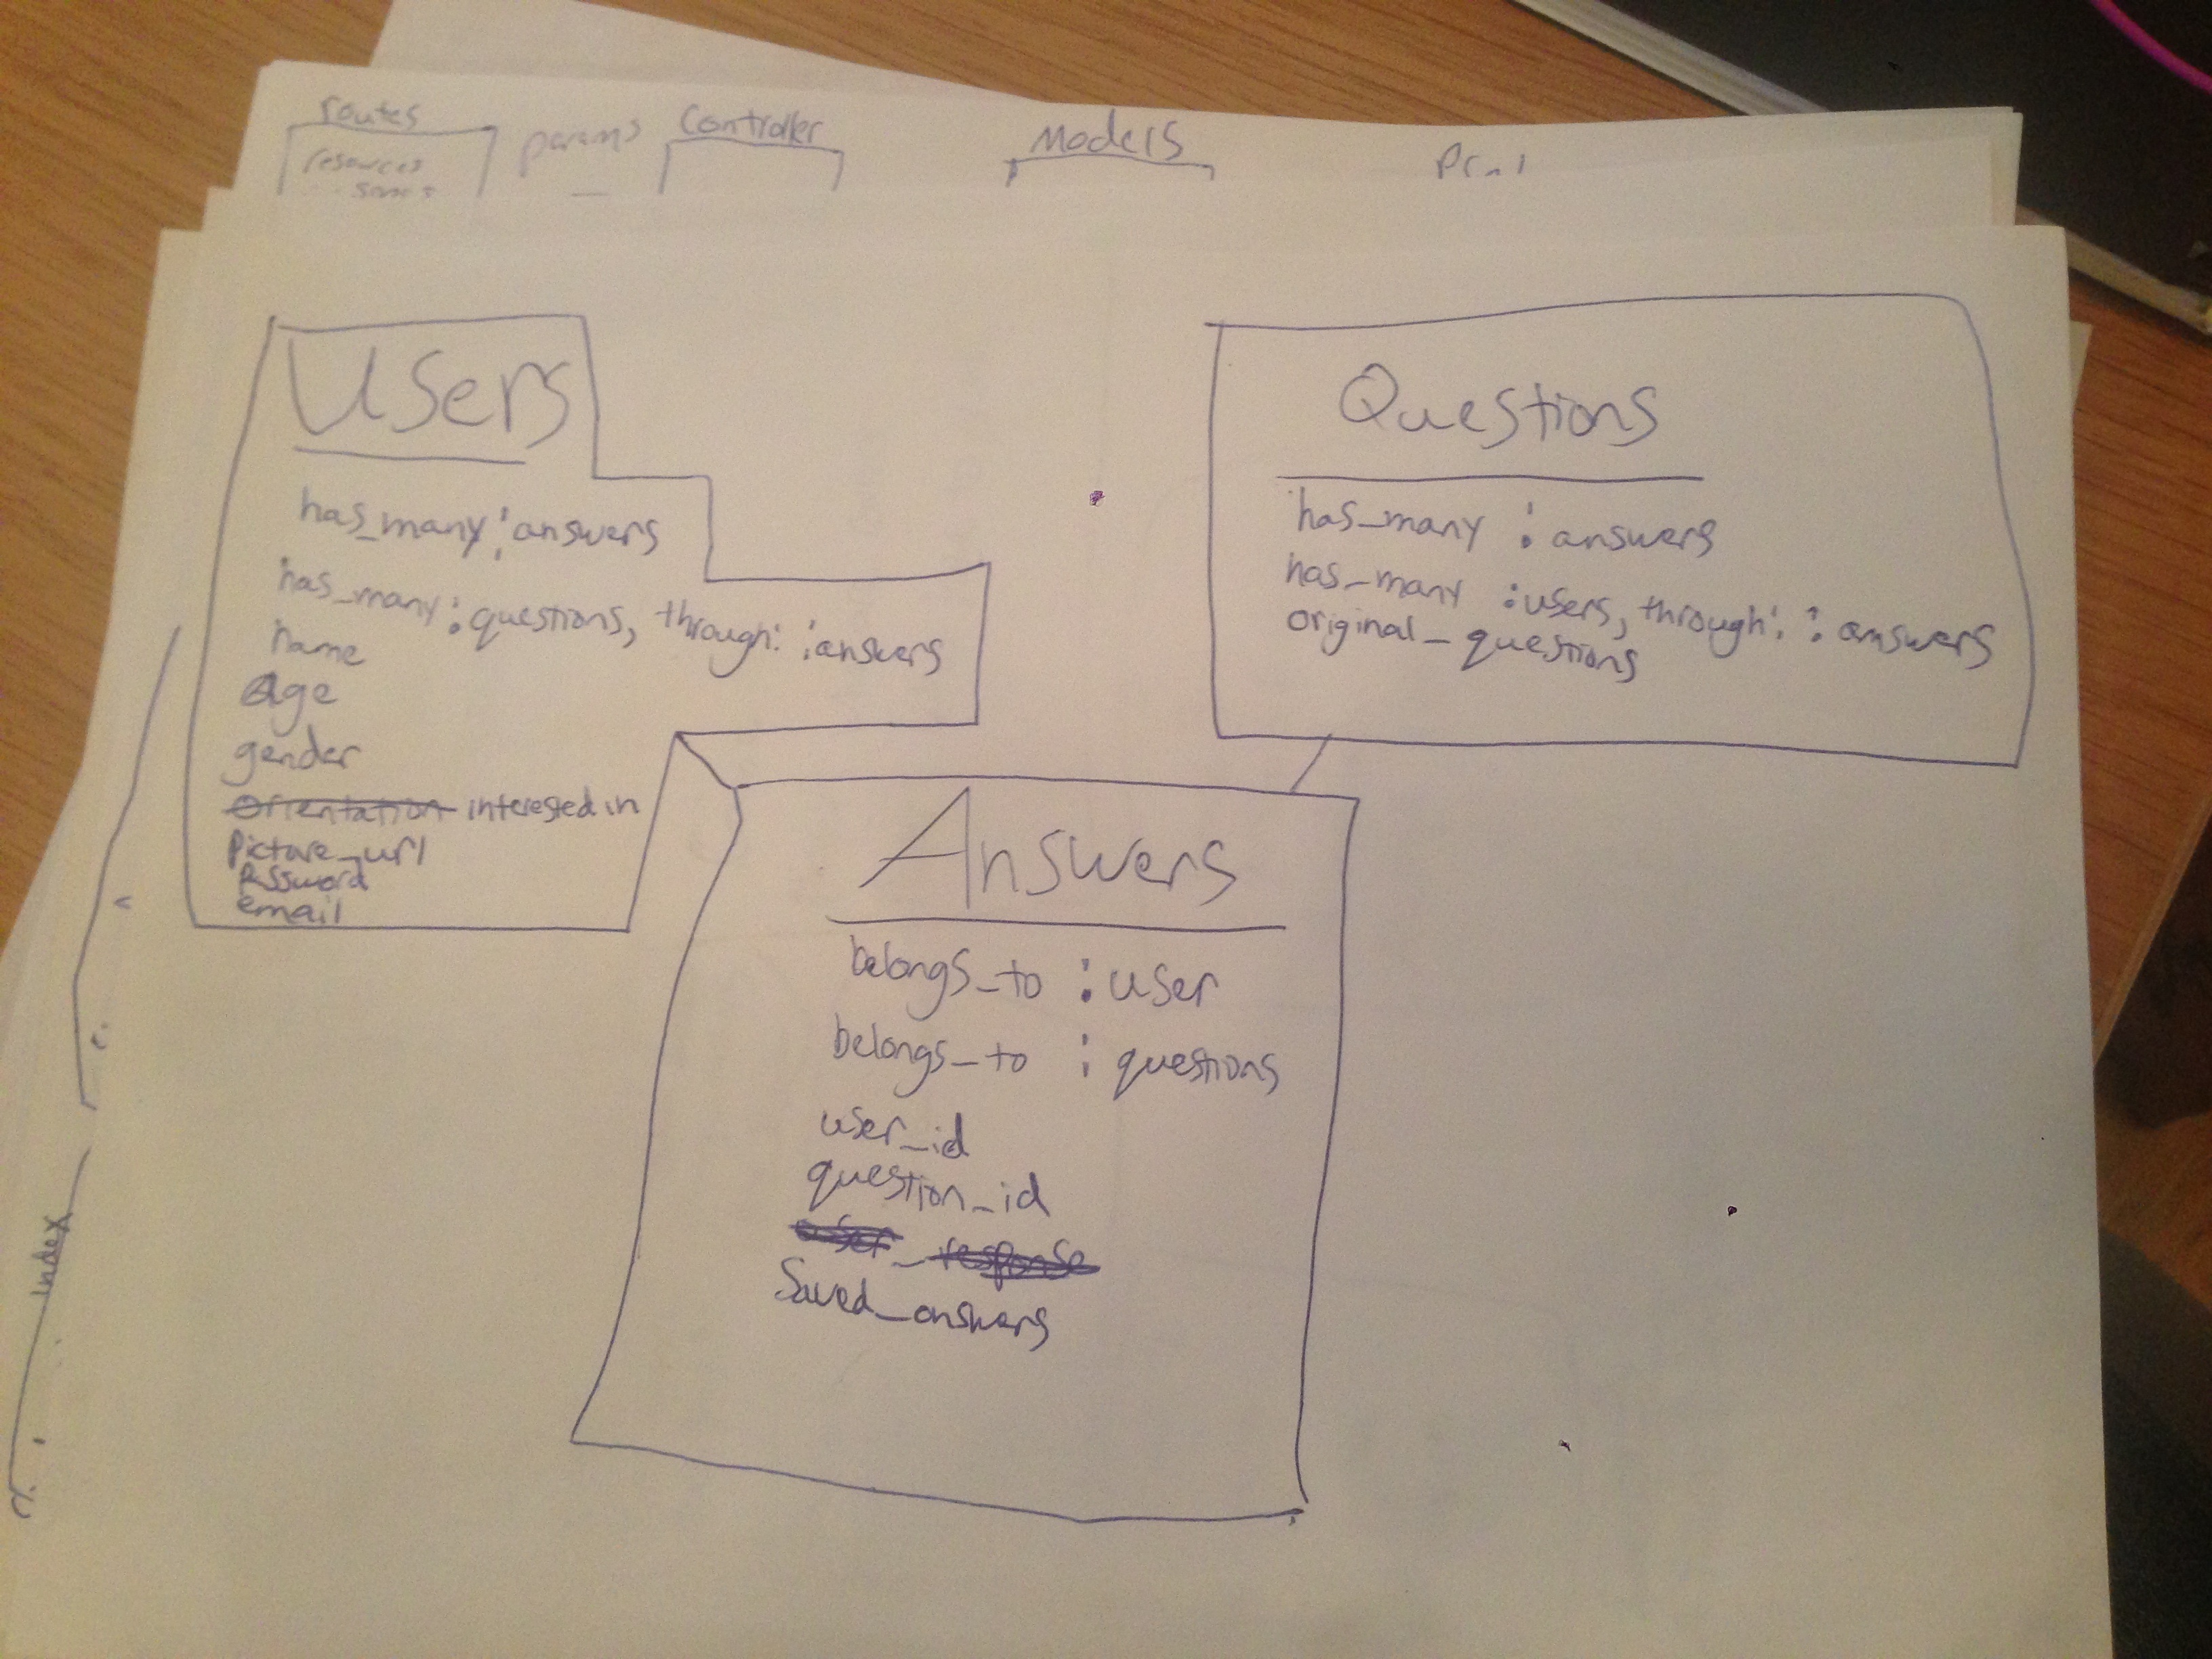 routes
resources
params
Controller
Models
Users
has_many :answers
has_many :questions, through: :answers
name
age
gender
orientation interested in
picture_url
password
email
Questions
has_many :answers
has_many :users, through: :answers
original_questions
Answers
belongs_to :user
belongs_to :questions
user_id
question_id
user_response
Saved_answers
index